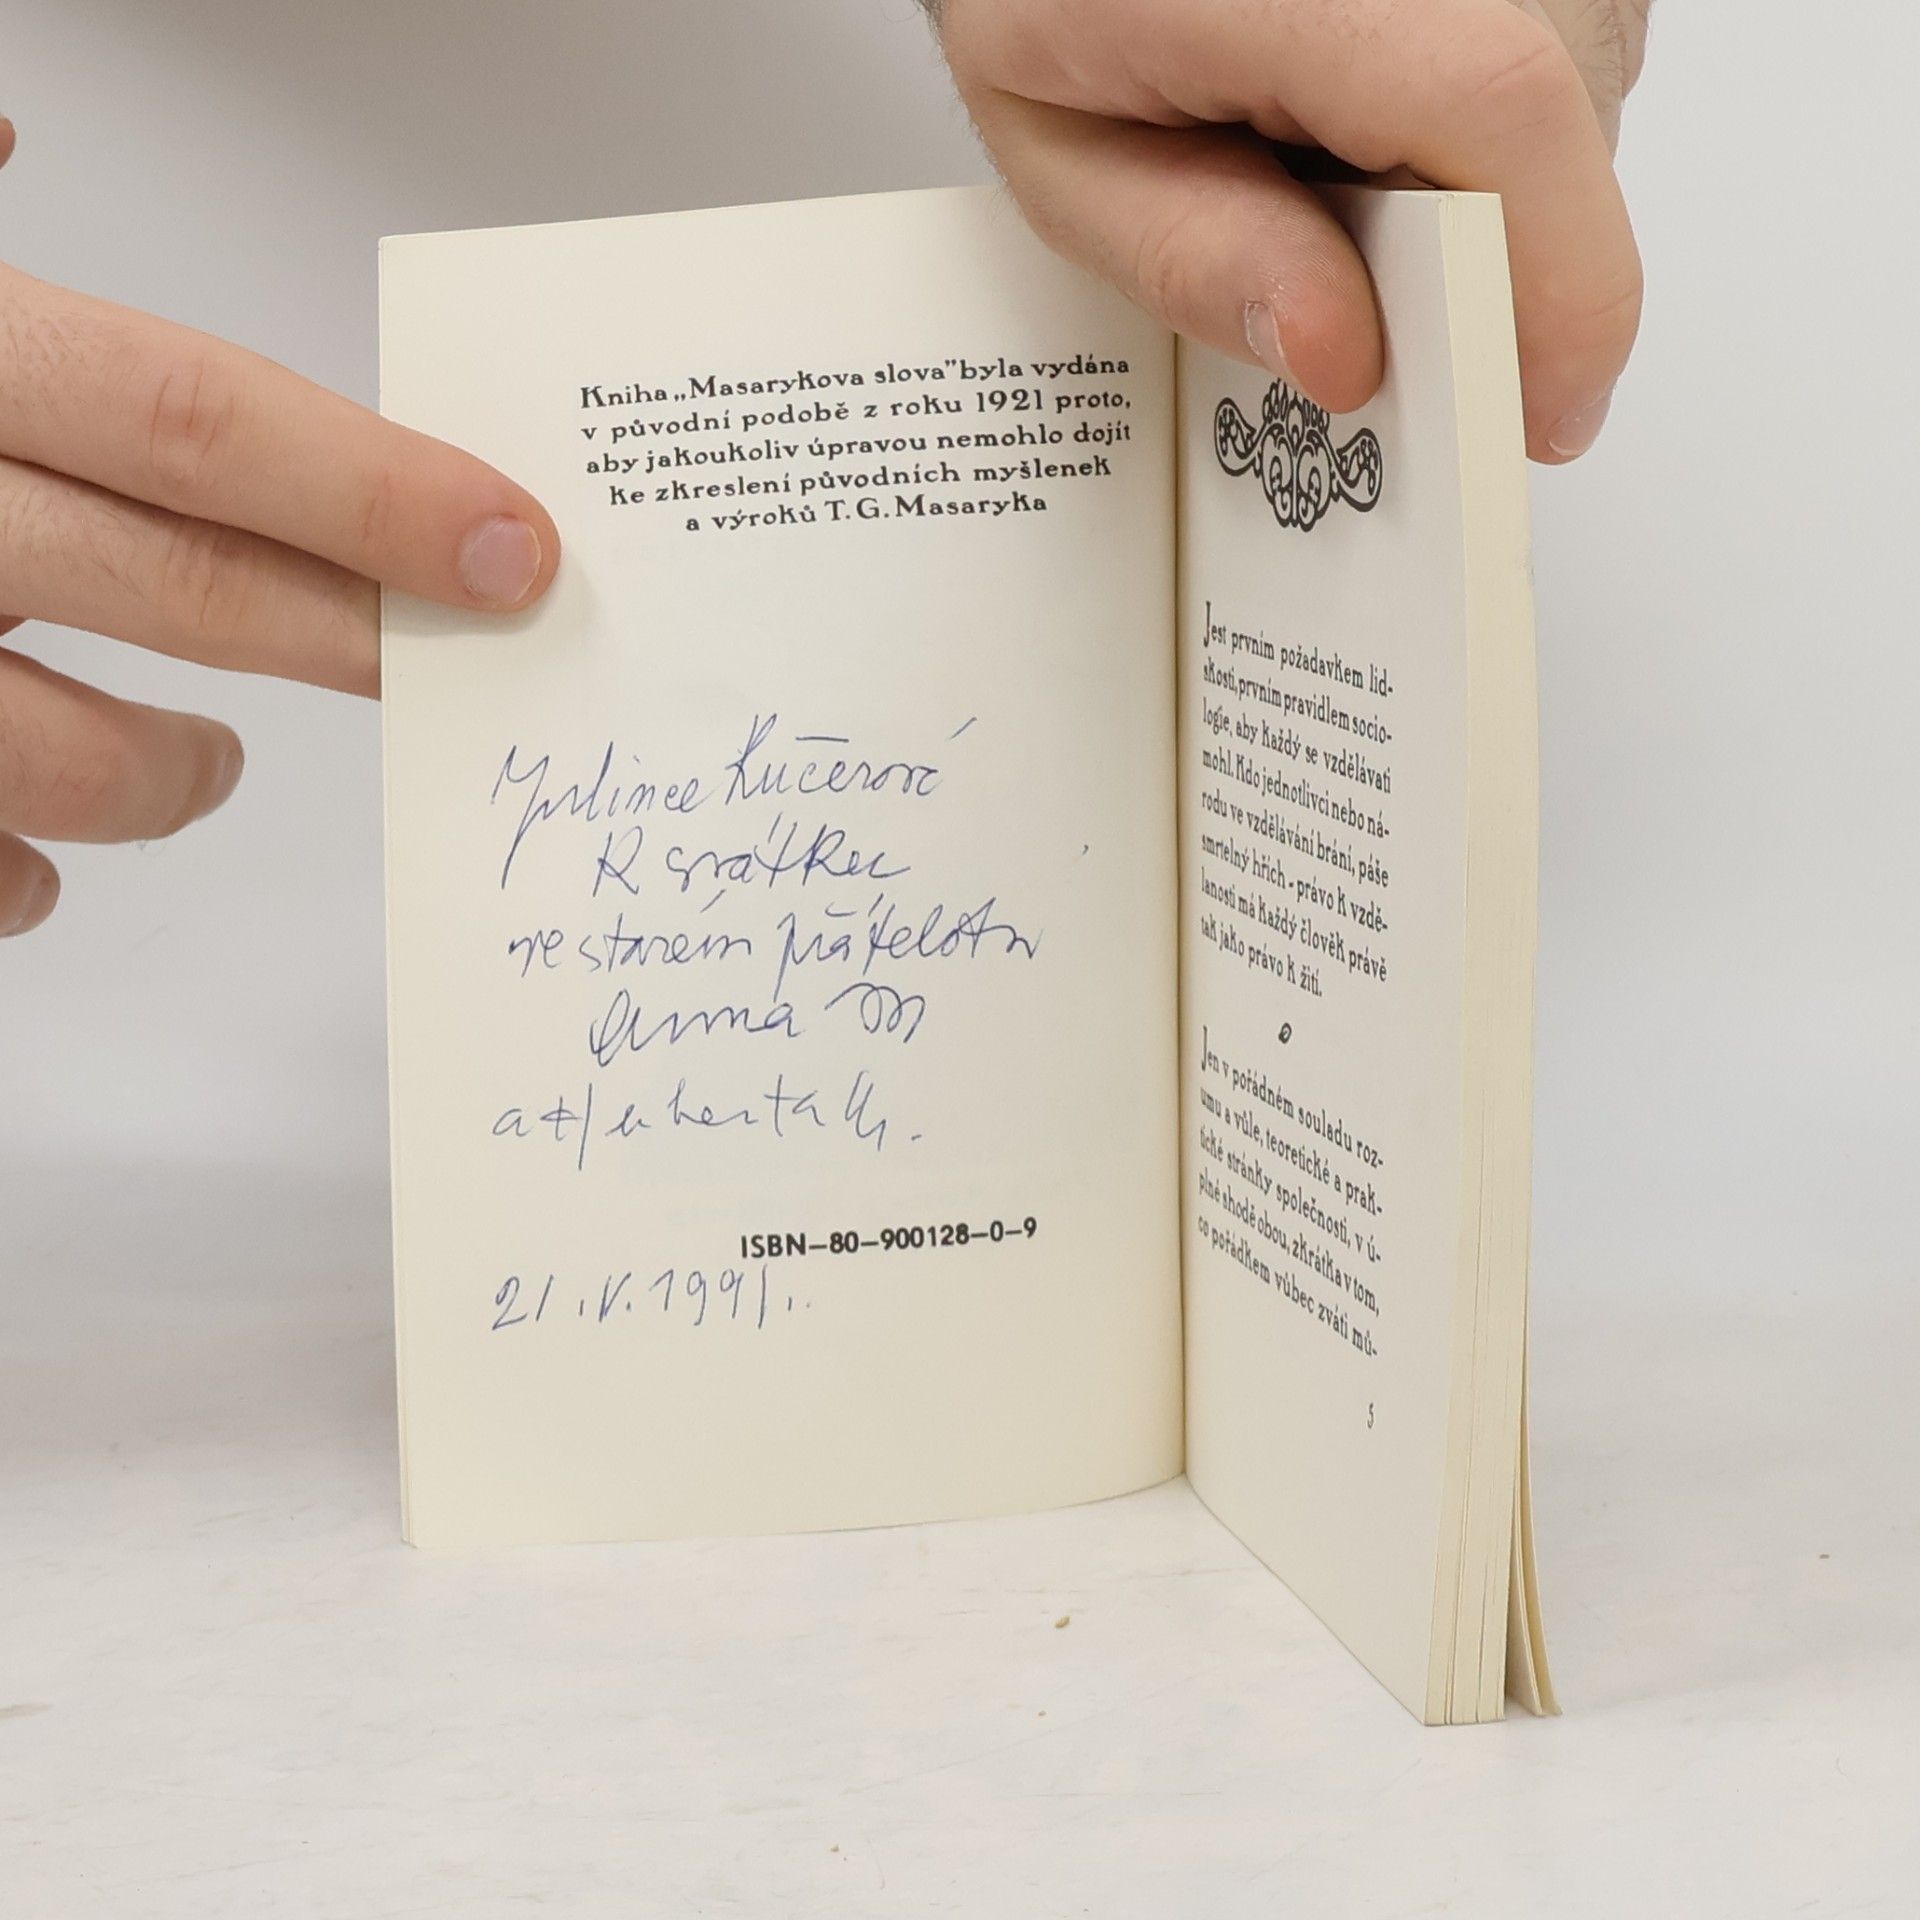 Kniha „Masarykova slova” byla vydána
v původní podobě z roku 1921 proto,
aby jakoukoliv úpravou nemohlo dojít
ke zkreslení původních myšlenek
a výroků T. G. Masaryka
Kučerové
K svátku
ve starém přátelství
Anna M
ISBN–80–900128–0–9
21. V. 1991.
Jest prvním požadavkem lid-
skosti, prvním pravidlem socio-
logie, aby každý se vzdělávati
mohl. Kdo jednotlivci nebo ná-
rodu ve vzdělávání brání, páše
smrtelný hřích - právo k vzdě-
lanosti má každý člověk právě
tak jako právo k žití.
Jen v pořádném souladu roz-
umu a vůle, teoretické a prak-
tické stránky společnosti, v ú-
plné shodě obou, zkrátka v tom,
co pořádkem vůbec zváti mů-
5